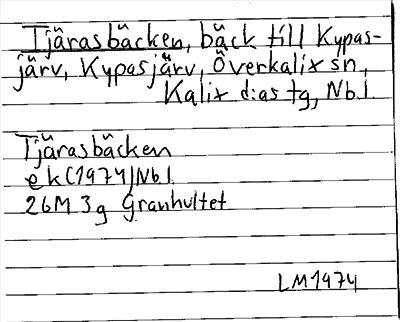 Tjärasbäcken, bäck till Kypas-
järv, Kypasjärv, Överkalix sn,
Kalix d:as tg, Nb.l.
Tjärasbäcken
ek (1974) Nb.l.
26M 3g Granhultet
LM 1974